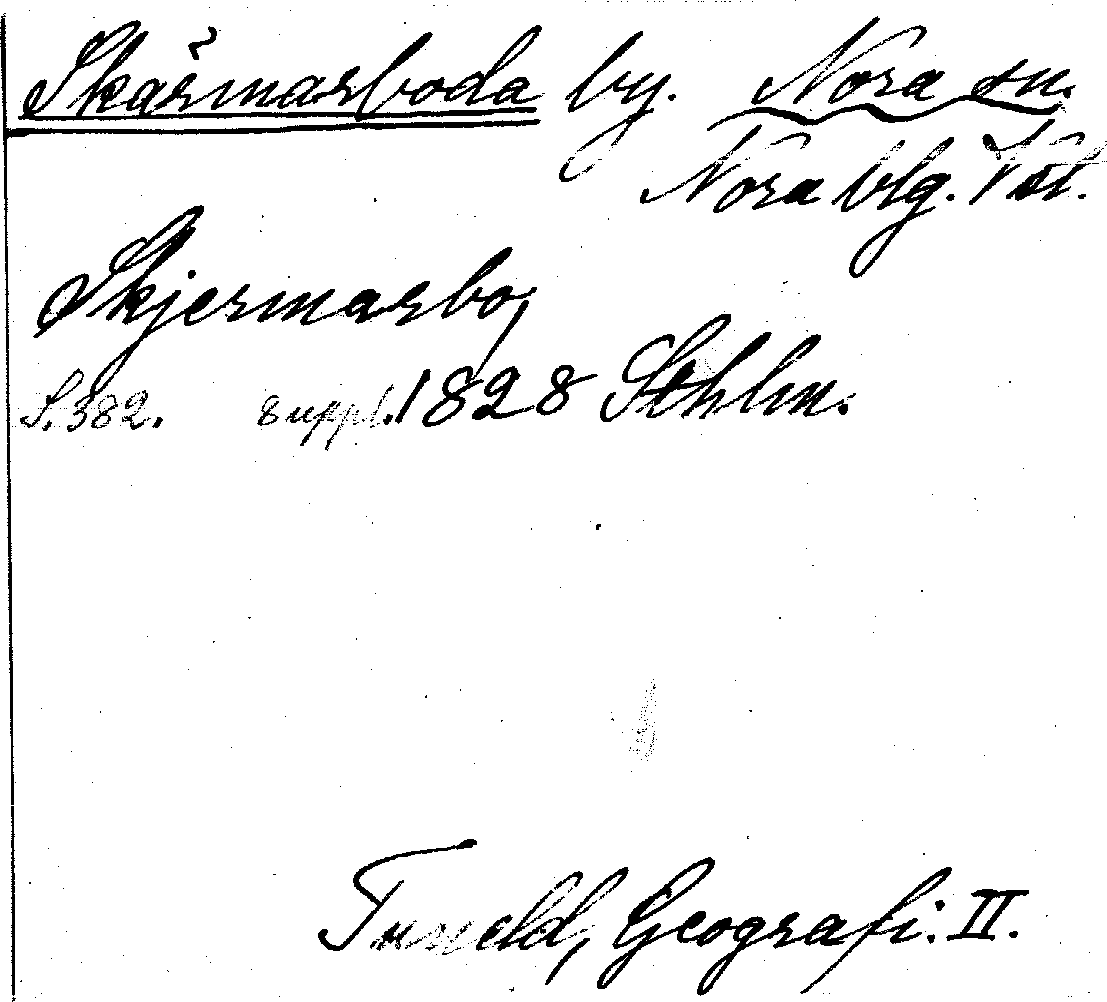 Skärmarboda by. Nora sn.
Nora blg. Vstl.
Skjermarbo,
S. 382. suppl. 1828 Sthlm.
Tuneld, Geografi. II.